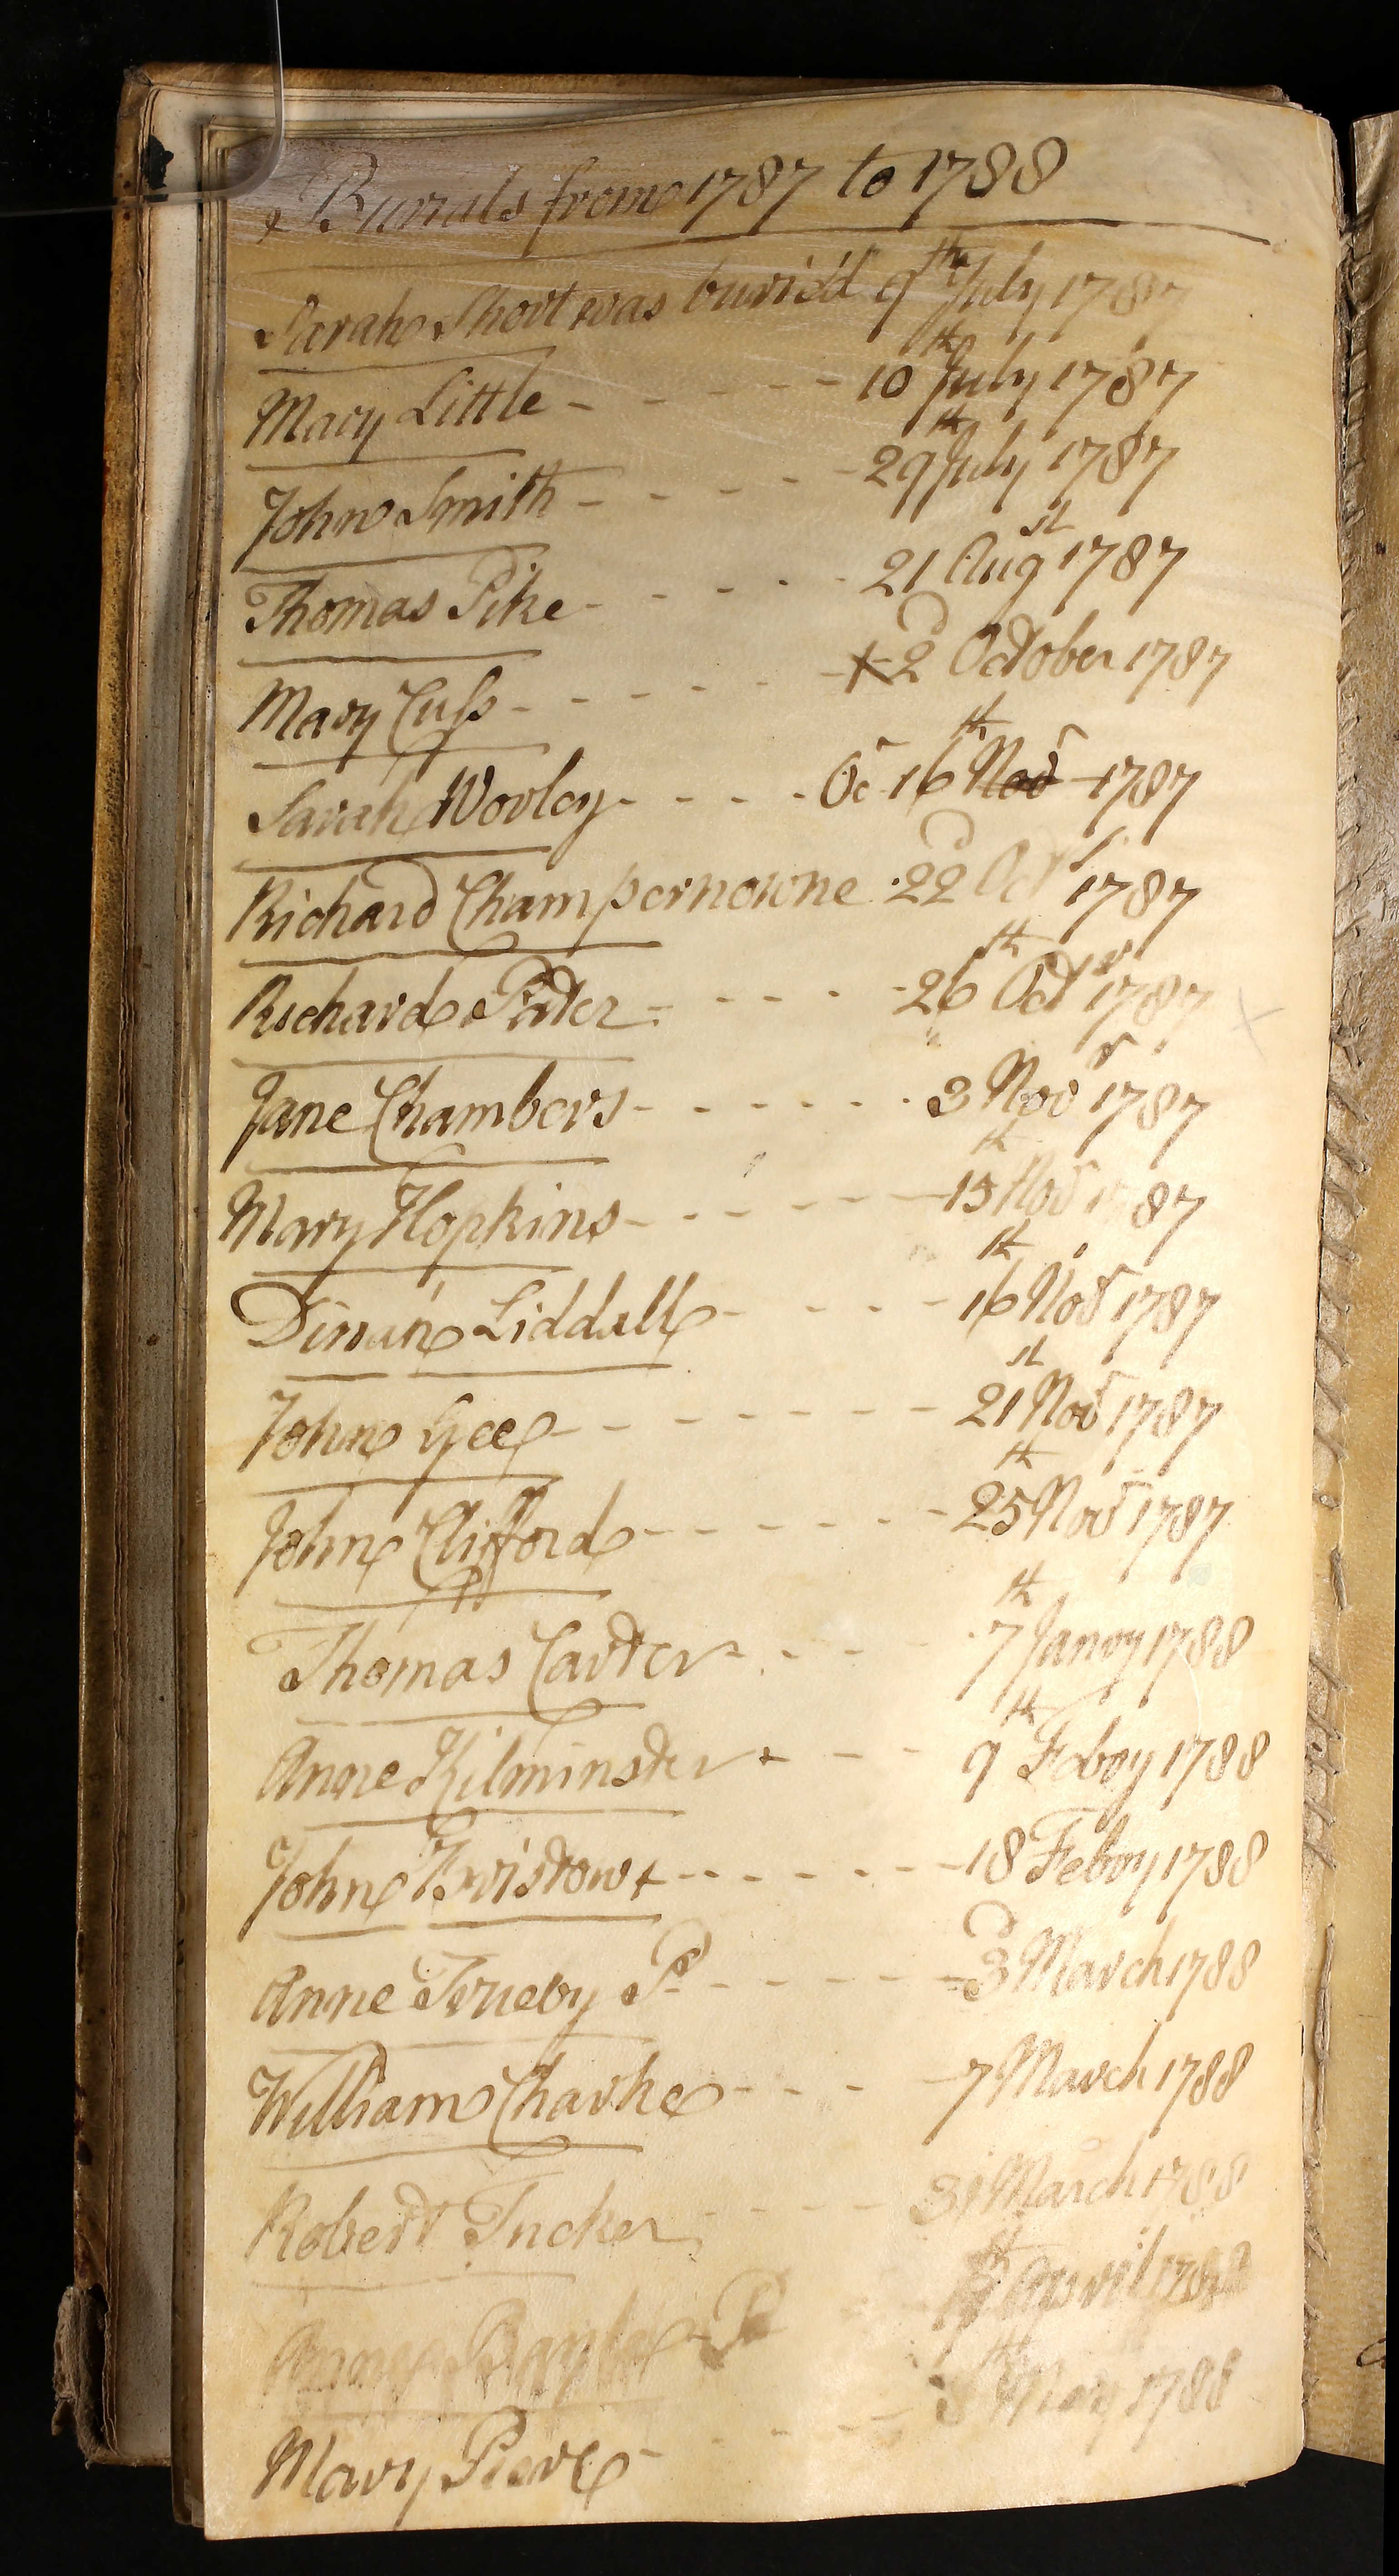 Burials from 1787 to 1788
Sarah Short was buri'd 9th July 1787
Mary Little - - - - - 10th July 1787
John Smith - - - - - 29th July 1787
Thomas Pike - - - - - 21st Aug 1787
Mary Cuss - - - - - 2d October 1787
Sarah Wooley - - - - Oc 16th Novr 1787
Richard Champernowne 22d Octr 1787
Richard Pinter - - - - - 26th Octr 1787
Jane Chambers - - - - - - 3 Novr 1787
Mary Hopkins - - - - - 15th Novr 1787
Liddall - - - - - 16th Novr 1787
John Gee - - - - - - - 21st Novr 1787
John Clifford - - - - - - - 25th Novr 1787
Thomas Carter - - - 7th Janry 1788
Anne Kilminster + - - 9th Febry 1788
John Bristow + - - - - - - 18 Febry 1788
Anne Trueby P - - - - - 3d March 1788
William Charke - - - - 7 March 1788
Robert Tucker - - - 31 March 1788
P April 1788
Mary - - - - May 1788